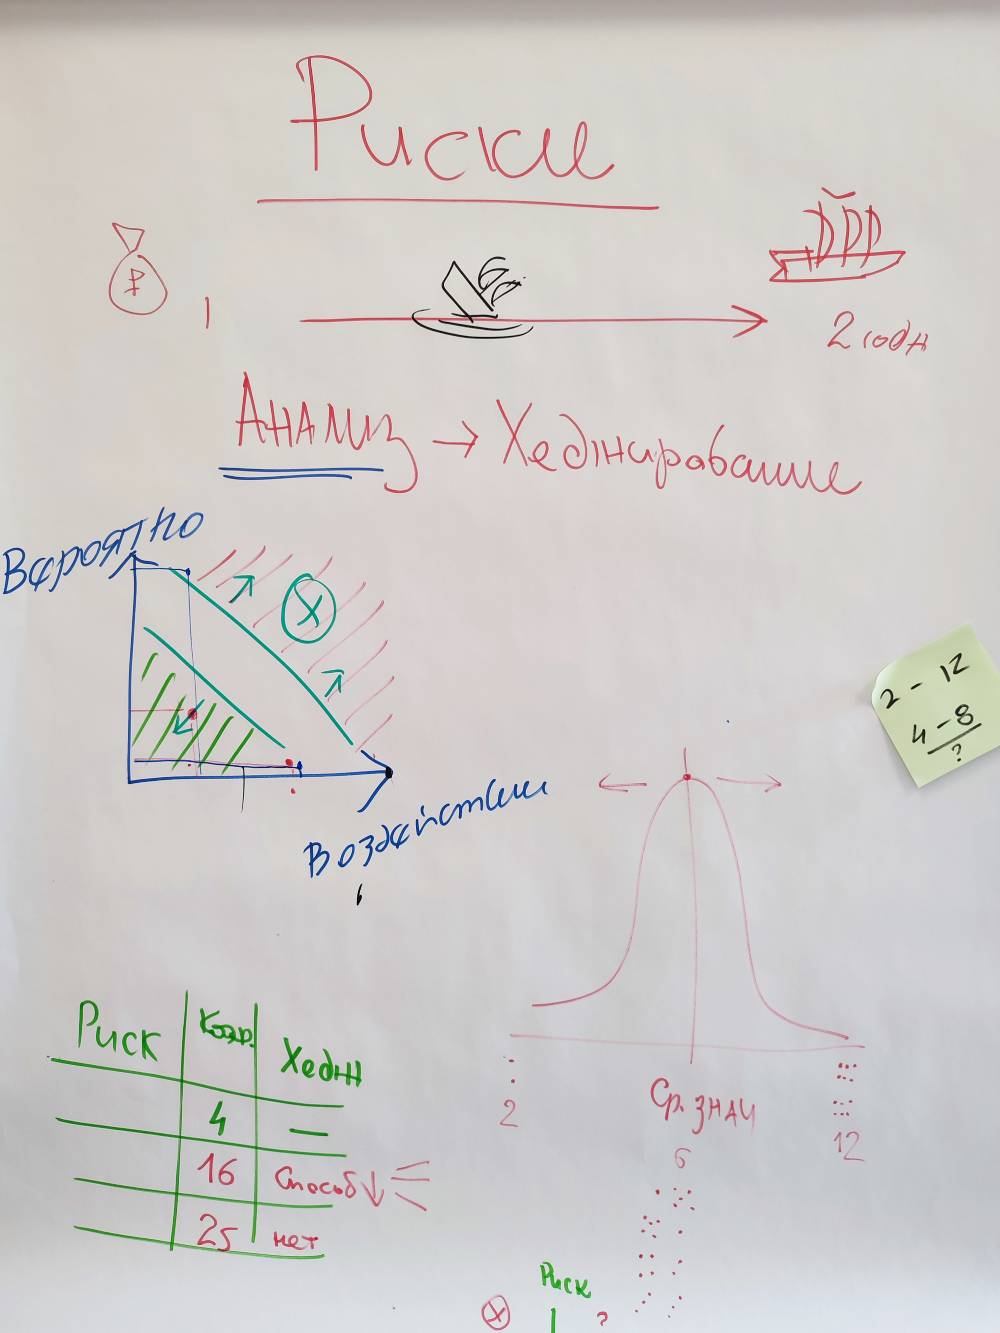 Риски
₽
1
2 годн
Анализ → Хеджирование
Вероятно
X
Воздействии
2 - 12
4 - 8
?
Риск Коэф. Хедж
4 —
16 способ ↓
25 нет
2 Ср. знач 12
6
Риск
X ?